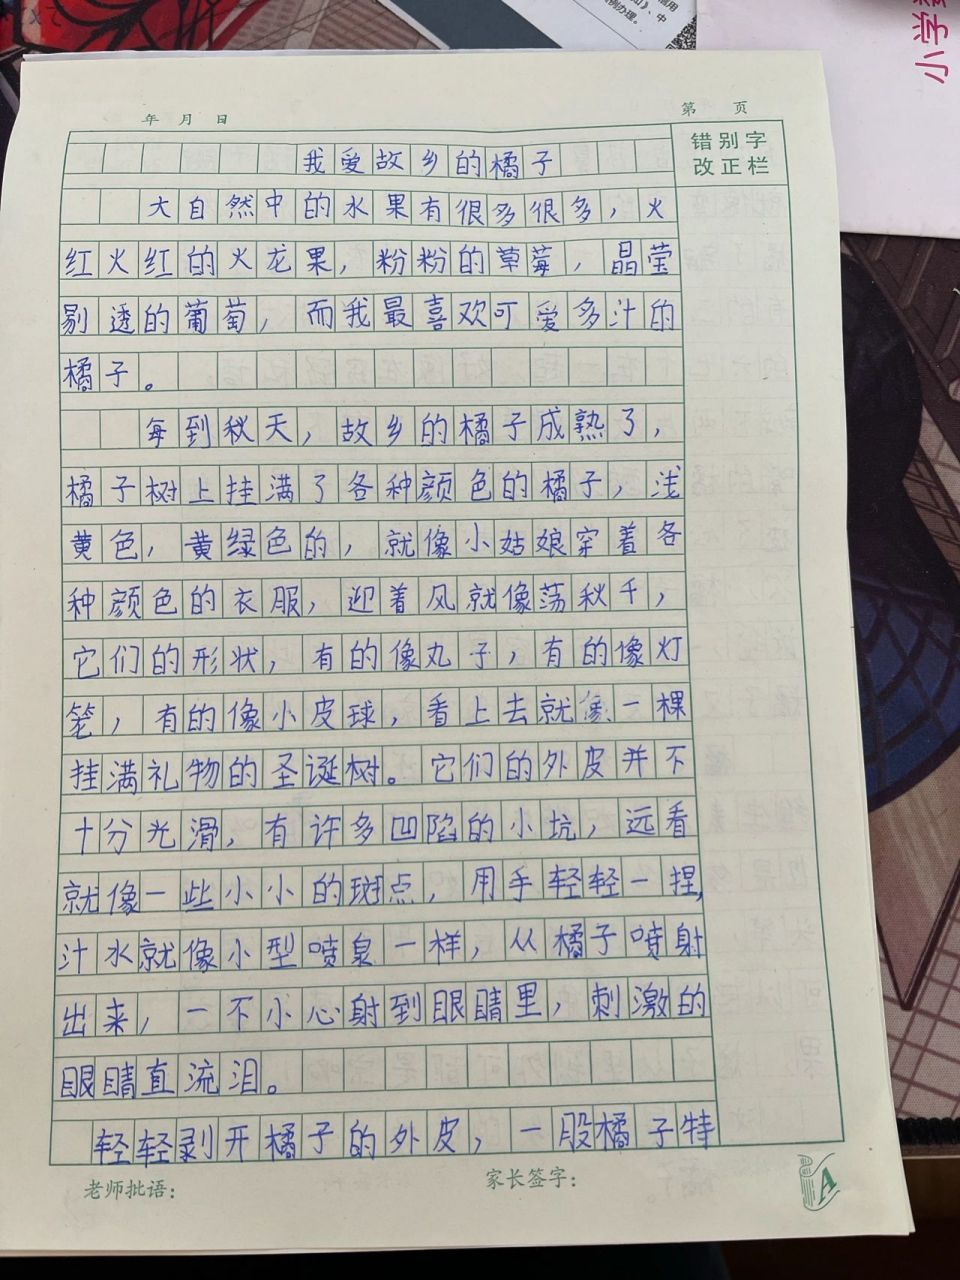 小学
年 月 日
第 页
错别字
改正栏
我爱故乡的橘子
大自然中的水果有很多很多，火
红火红的火龙果，粉粉的草莓，晶莹
剔透的葡萄，而我最喜欢可爱多汁的
橘子。
每到秋天，故乡的橘子成熟了，
橘子树上挂满了各种颜色的橘子，浅
黄色，黄绿色的，就像小姑娘穿着各
种颜色的衣服，迎着风就像荡秋千，
它们的形状，有的像丸子，有的像灯
笼，有的像小皮球，看上去就像一棵
挂满礼物的圣诞树。它们的外皮并不
十分光滑，有许多凹陷的小坑，远看
就像一些小小的斑点，用手轻轻一捏，
汁水就像小型喷泉一样，从橘子喷射
出来，一不小心射到眼睛里，刺激的
眼睛直流泪。
轻轻剥开橘子的外皮，一股橘子特
老师批语：
家长签字：